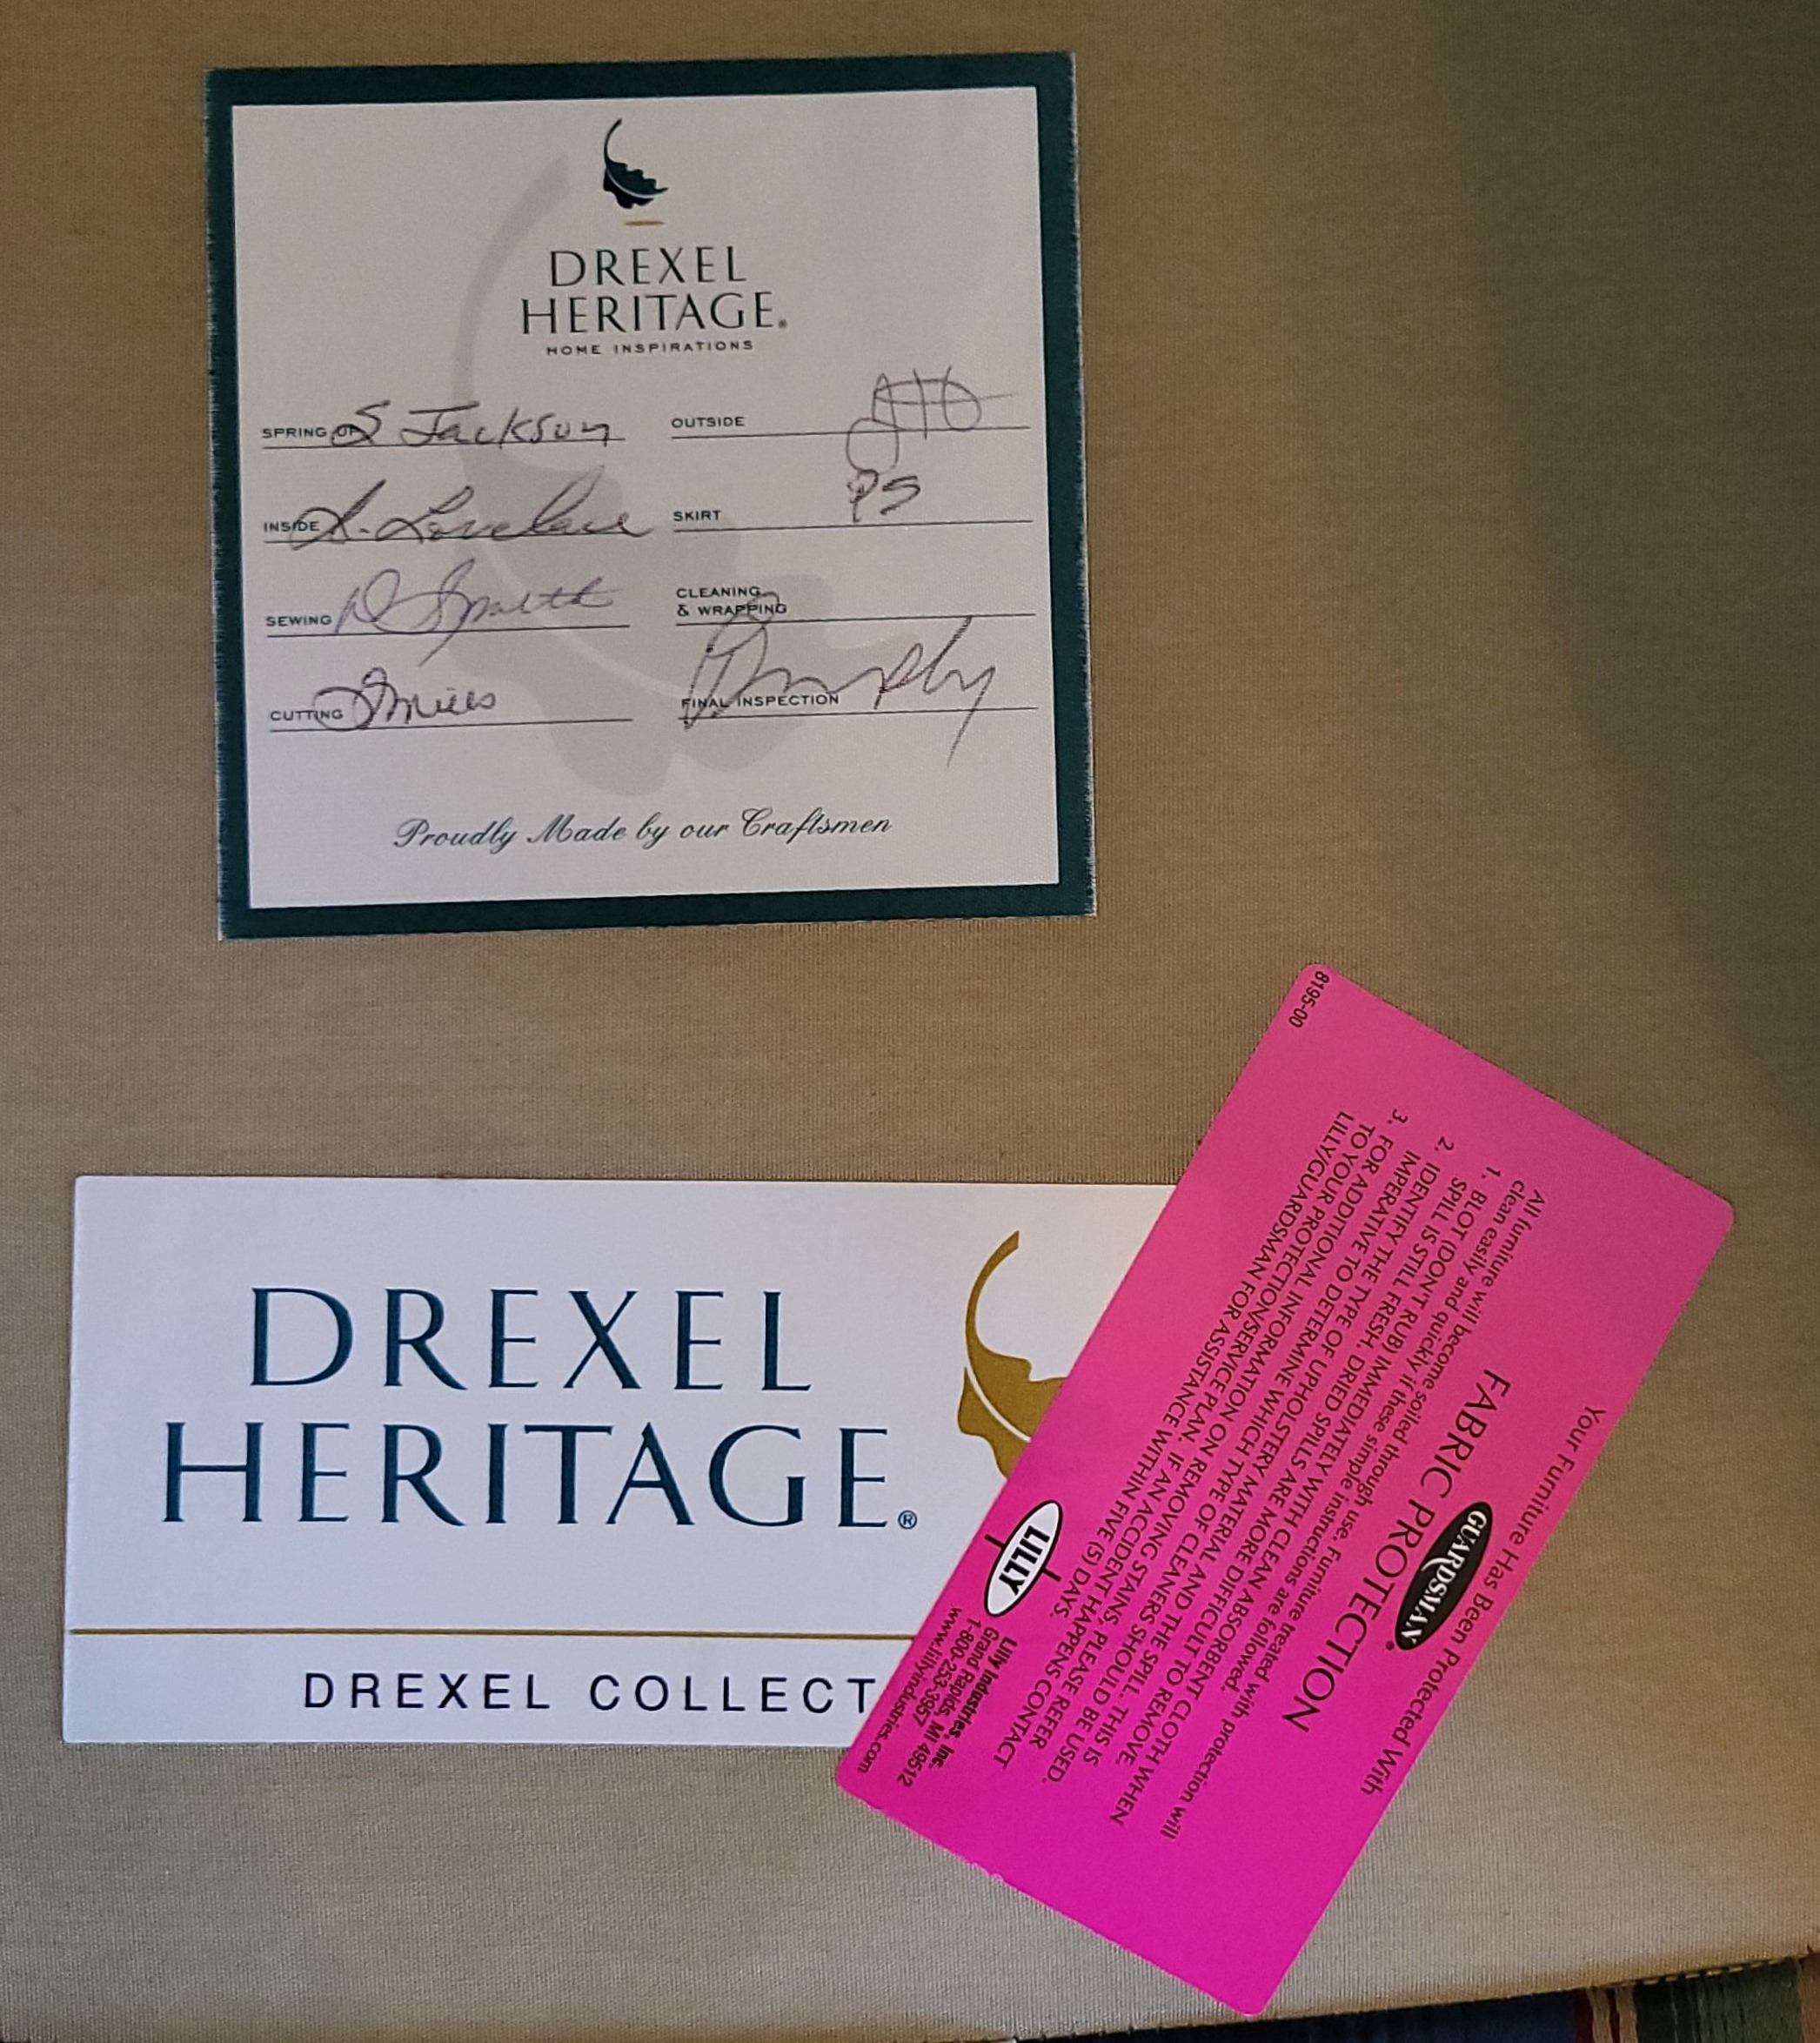 DREXEL
HERITAGE®
HOME INSPIRATIONS
SPRING UP S Jackson
OUTSIDE
INSIDE L. Lovelace
SKIRT PS
SEWING D Smith
CLEANING
& WRAPPING
CUTTING
FINAL INSPECTION Murphy
Proudly Made by our Craftsmen
DREXEL
HERITAGE®
DREXEL COLLECT
8195-00
Your Furniture Has Been Protected With
GUARDSMAN®
FABRIC PROTECTION
All furniture will become soiled through use. Furniture treated with protection will
clean easily and quickly if these simple instructions are followed.
1. BLOT (DON'T RUB) IMMEDIATELY WITH CLEAN ABSORBENT CLOTH WHEN
SPILL IS STILL FRESH. DRIED SPILLS ARE MORE DIFFICULT TO REMOVE.
2. IDENTIFY THE TYPE OF UPHOLSTERY MATERIAL AND THE SPILL. THIS IS
IMPERATIVE TO DETERMINE WHICH TYPE OF CLEANERS SHOULD BE USED.
3. FOR ADDITIONAL INFORMATION ON REMOVING STAINS, PLEASE REFER
TO YOUR PROTECTION/SERVICE PLAN. IF AN ACCIDENT HAPPENS CONTACT
LILLY/GUARDSMAN FOR ASSISTANCE WITHIN FIVE (5) DAYS.
LILLY
Lilly Industries, Inc.
Grand Rapids, MI 49512
1-800-253-3957
www.lillyindustries.com